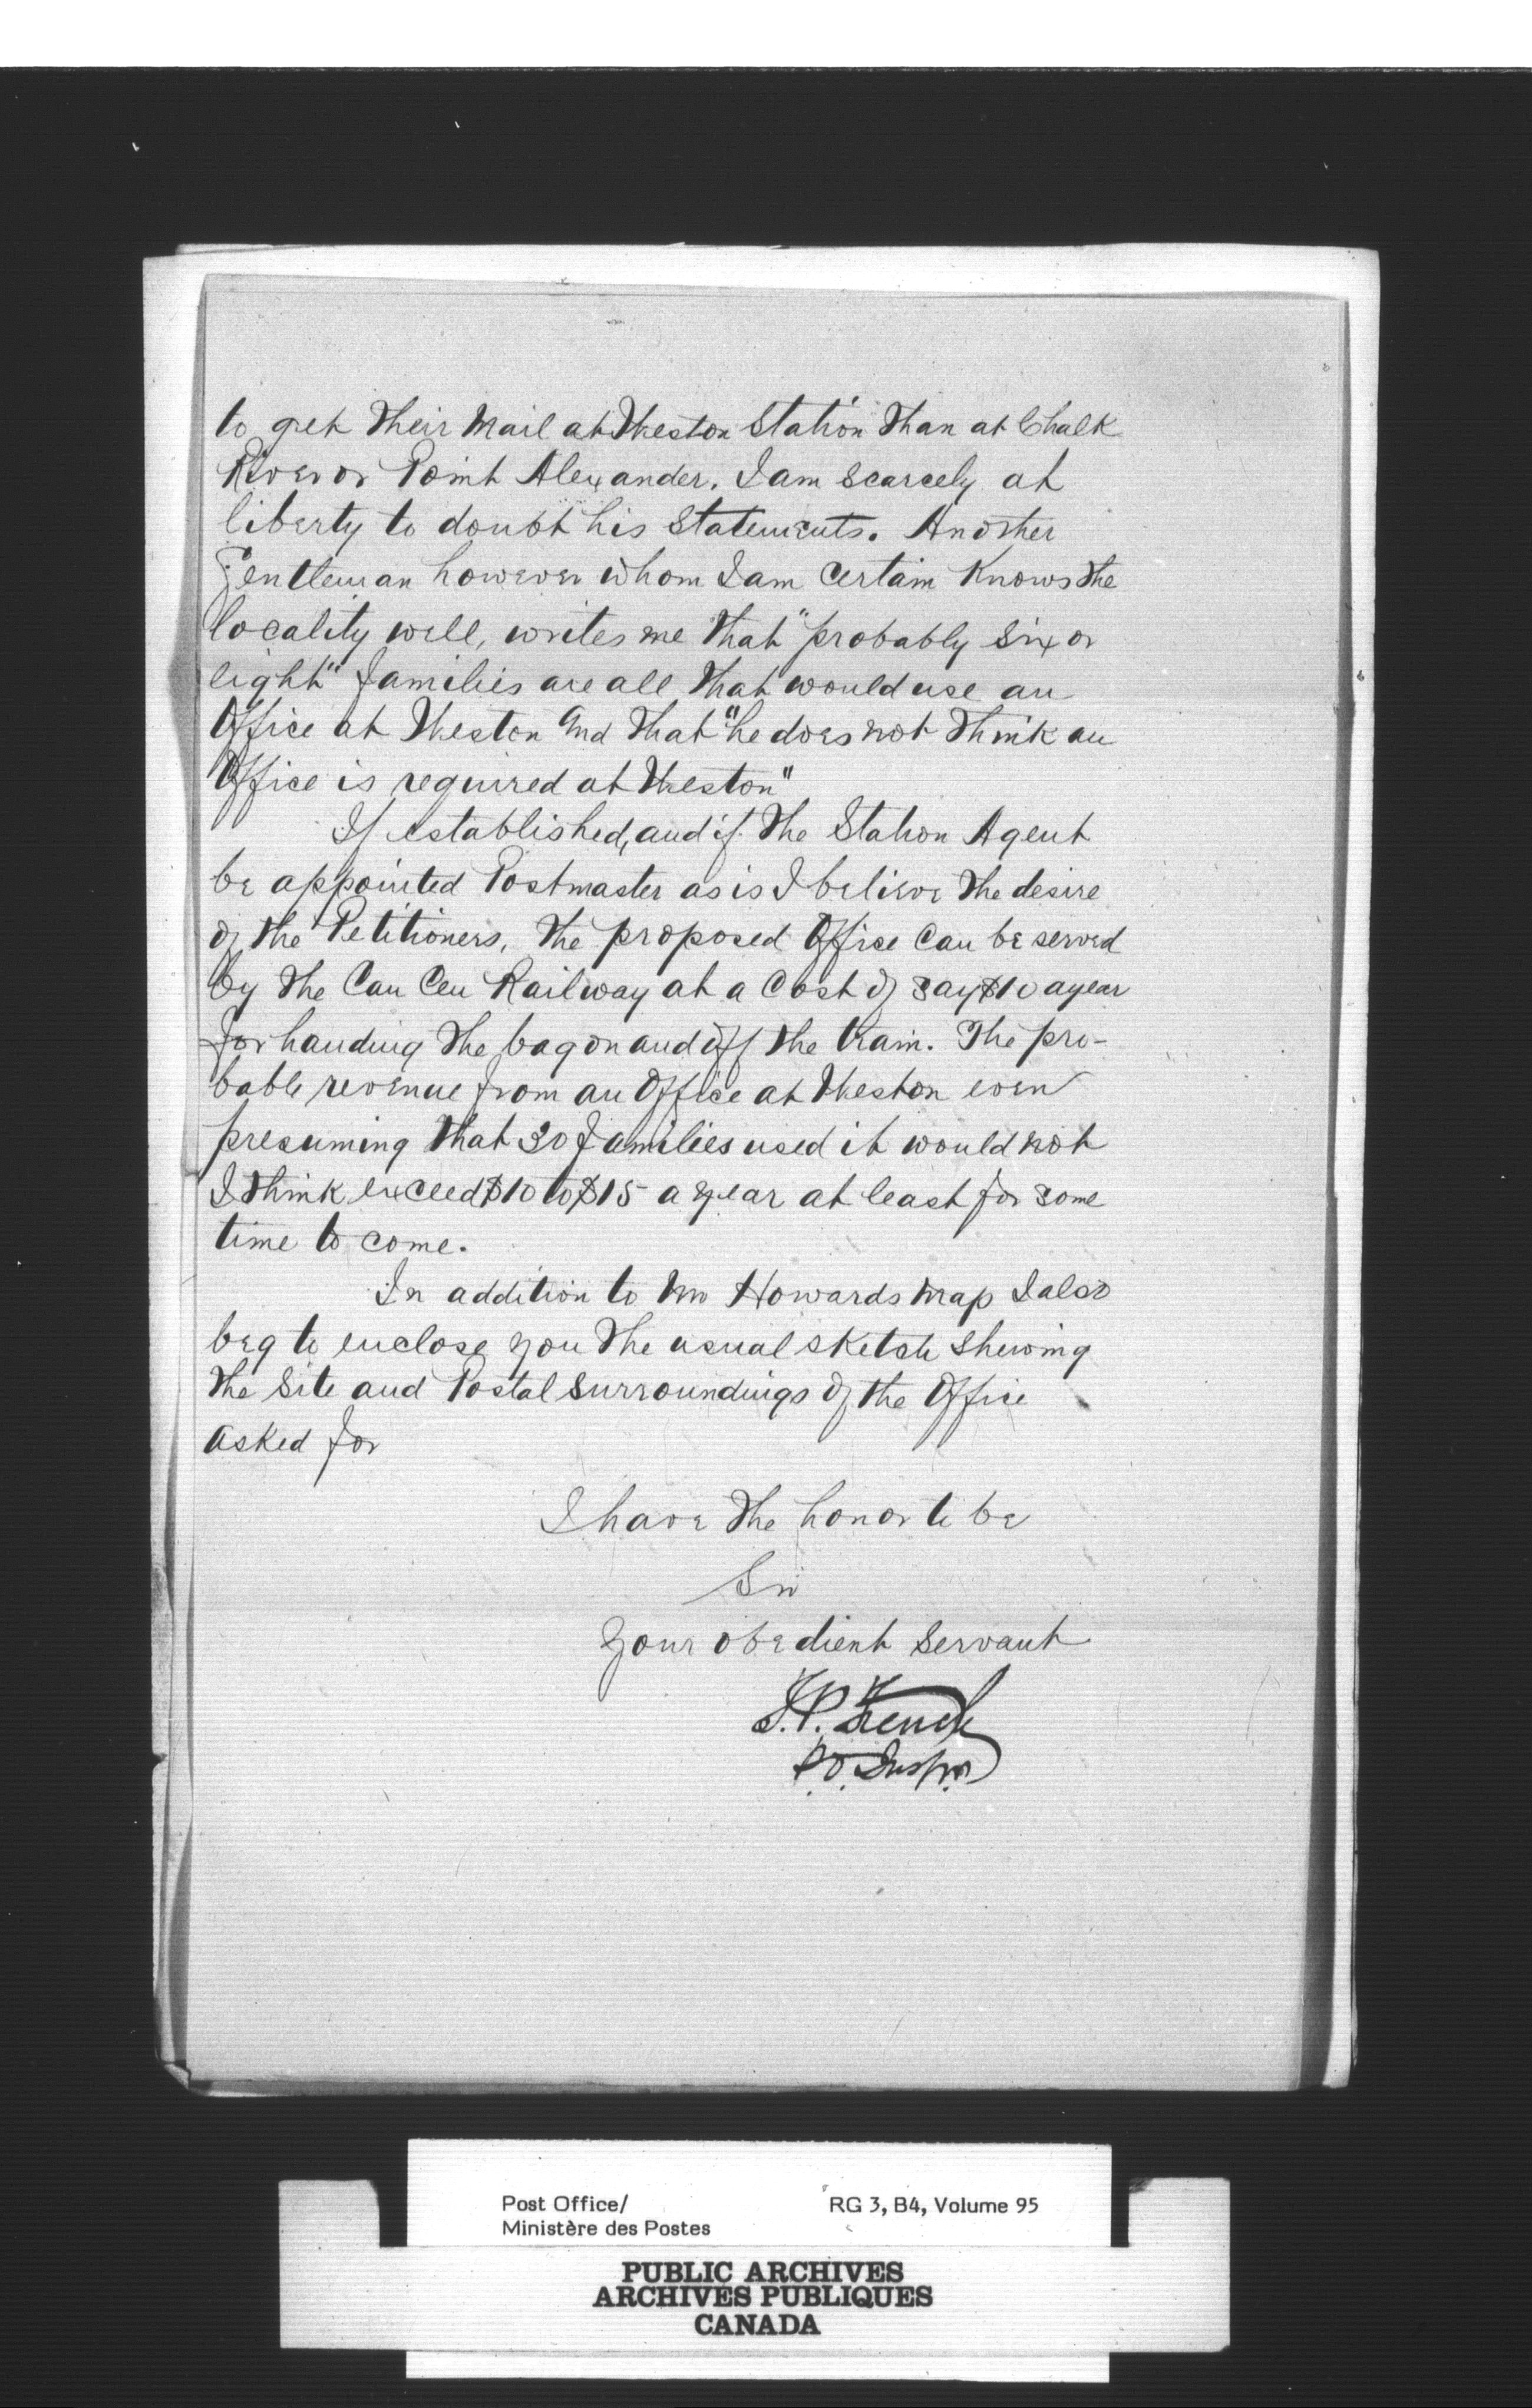 to get their Mail at Weston Station than at Chalk
River or Point Alexander. I am scarcely at
liberty to doubt his Statements. Another
Gentleman however whom I am certain Knows the
locality well, writes me that "probably six or
eight" families are all that would use an
Office at Weston and that "he does not think an
Office is required at Weston"
If established, and if the Station Agent
be appointed Postmaster as is I believe the desire
of the Petitioners, the proposed Office can be served
by the Can Cen Railway at a Cost of say $10 a year
for handing the bag on and off the train. The pro-
bable revenue from an Office at Weston even
presuming that 30 families used it would not
I think exceed $10 to $15 a year at least for some
time to come.
In addition to Mr Howards Map I also
beg to enclose you the usual sketch shewing
the Site and Postal Surroundings of the Office
asked for
I have the honor to be
Sir
Your obedient Servant
T.P. French
P.O. Inspr.
Post Office/
Ministère des Postes
RG 3, B4, Volume 95
PUBLIC ARCHIVES
ARCHIVES PUBLIQUES
CANADA